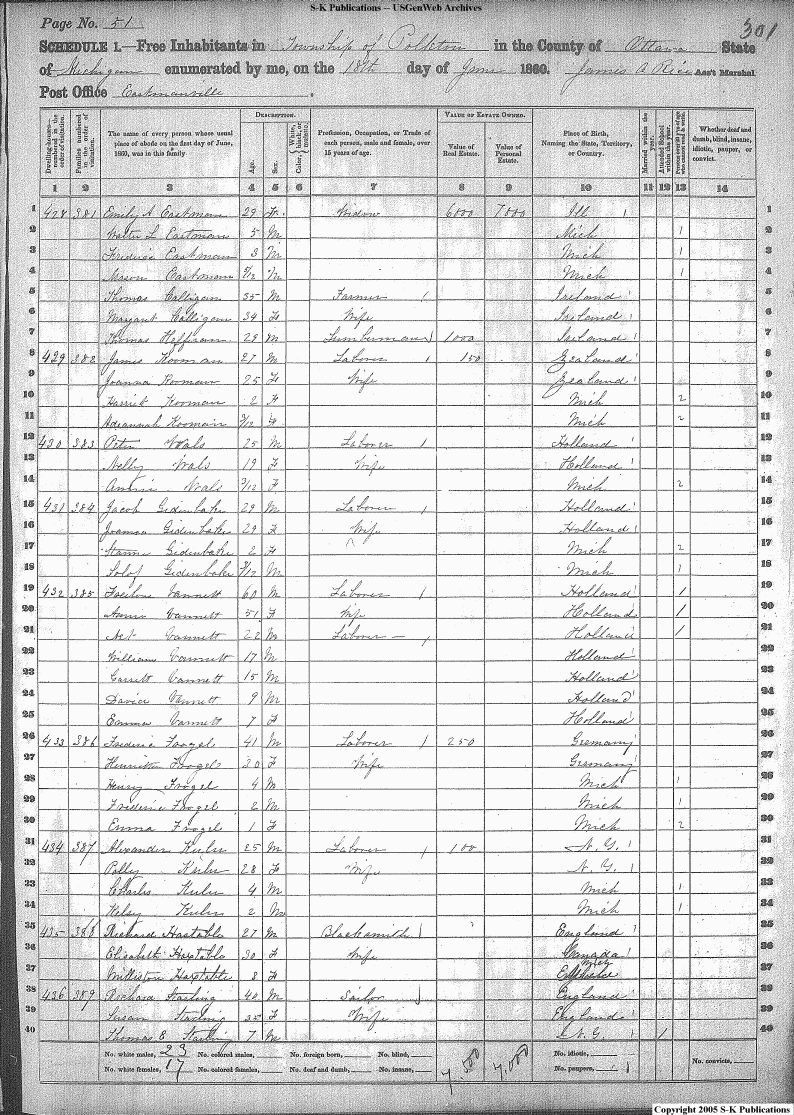 S-K Publications – USGenWeb Archives
Page No. 51
301
SCHEDULE 1.—Free Inhabitants in Township of Polkton in the County of Ottawa State
of Michigan enumerated by me, on the 18th day of June 1860. James A Rice Ass't Marshal
Post Office Eastmanville.
Dwelling-houses—numbered in the order of visitation.
Families numbered in the order of visitation.
The name of every person whose usual place of abode on the first day of June, 1860, was in this family
DESCRIPTION.
Age.
Sex.
Color, White, black, or mulatto.
Profession, Occupation, or Trade of each person, male and female, over 15 years of age.
VALUE OF ESTATE OWNED.
Value of Real Estate.
Value of Personal Estate.
Place of Birth, Naming the State, Territory, or Country.
Married within the year.
Attended School within the year.
Whether deaf and dumb, blind, insane, idiotic, pauper, or convict.
1 2 3 4 5 6 7 8 9 10 11 12 13 14
1 428 381 Emily A Eastman 29 F Widow 6000 7000 Ill 1
2 Walter L Eastman 5 M Mich 1 2
3 Frederic Eastman 3 M Mich 1 3
4 Mason Eastman 2/12 M Mich 1 4
5 Thomas Calligan 35 M Farmer Ireland 5
6 Margaret Calligan 34 F Wife Ireland 6
7 Thomas Heffran 29 M Lumberman 1000 Ireland 7
8 429 382 James Kooman 27 M Laborer 150 Zealand 8
9 Joanna Kooman 25 F Wife Zealand 9
10 Harriet Kooman 2 F Mich 2 10
11 Kooman F Mich 2 11
12 430 383 Peter Wals 25 M Laborer Holland 12
13 Nelly Wals 19 F Wife Holland 13
14 Annie Wals 3/12 F Mich 2 14
15 431 384 Jacob Gidenbake 29 M Laborer Holland 15
16 Gidenbake 29 F Wife Holland 16
17 Gidenbake 2 F Mich 2 17
18 Gidenbake M Mich 1 18
19 432 385 Vannett 60 M Laborer Holland 1 19
20 Annie Vannett 51 F Wife Holland 1 20
21 Art Vannett 22 M Laborer Holland 1 21
22 William Vannett 17 M Holland 22
23 Garrett Vannett 15 M Holland 23
24 David Vannett 9 M Holland 24
25 Emma Vannett 7 F Holland 25
26 433 386 Frederic Frogel 41 M Laborer 250 Germany 26
27 Henrietta Frogel 30 F Wife Germany 27
28 Henry Frogel 4 M Mich 1 28
29 Frederic Frogel 2 M Mich 1 29
30 Emma Frogel 1 F Mich 2 30
31 434 387 Alexander Kulu 25 M Laborer 100 N. Y. 31
32 Polly Kulu 28 F Wife N. Y. 32
33 Charles Kulu 4 M Mich 1 33
34 Kelsy Kulu 2 M Mich 1 34
35 435 388 Richard Haxtable 27 M Blacksmith England 35
36 Elizabeth Haxtable 30 F Wife Canada 36
37 Haxtable 8 F Mich 37
38 436 389 Richard Starling 40 M Sailor England 38
39 Susan Starling 35 F Wife England 39
40 Thomas E Starling 7 M N. Y. 1 40
No. white males, 23 No. colored males, No. foreign born, No. blind, 7,500 7,000 No. idiotic, No. convicts,
No. white females, 17 No. colored females, No. deaf and dumb, No. insane, No. paupers,
Copyright 2005 S-K Publications